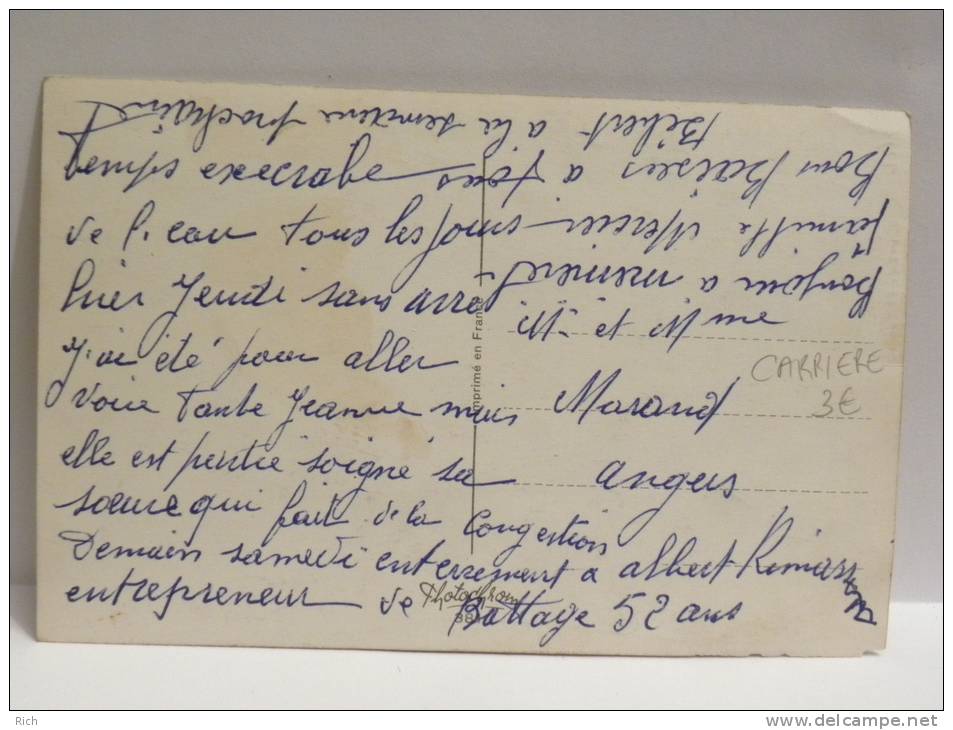 temps execrabe
de l'eau tous les jours
hier Jeudi sans arret
J'ai été pour aller
voire Tante Jeanne mais
elle est partie soigné sa
soeure qui fait de la Congestion
Demain samedi enterrement a albert
entrepreneur de Battage 52 ans
Bonjour a memere
famille Mercier
Bon Baisers a tous
Bébert a la semaine prochaine
Mr et Mme
Marand
angers
CARRIERE
3€
Imprimé en France
Photochrom
38
Rich
www.delcampe.net